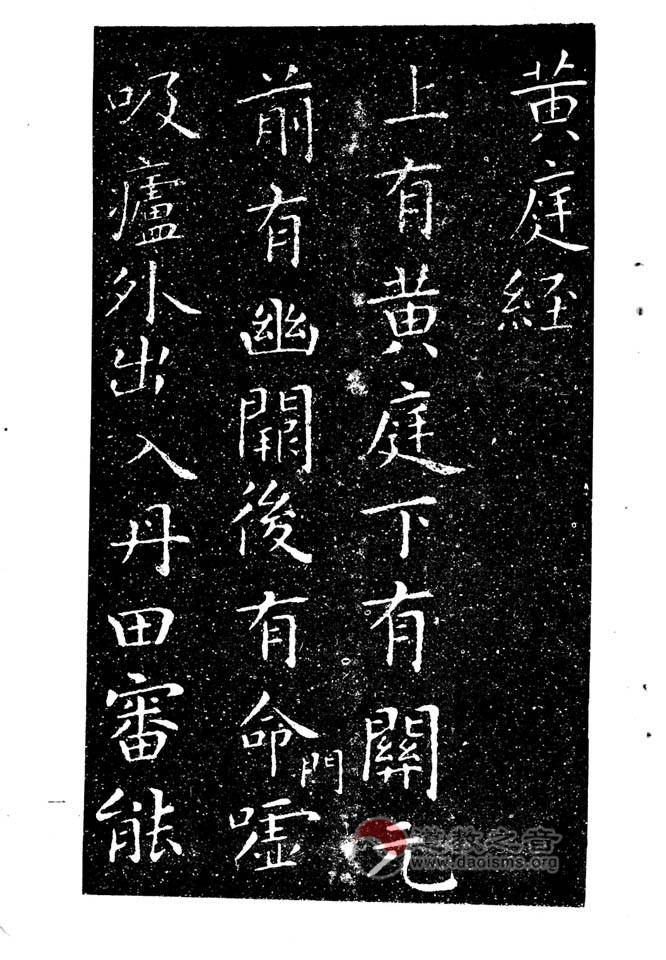 黄庭經
上有黄庭下有關元
前有幽關後有命門噓
吸廬外出入丹田審能
道教之音
www.daoisms.org